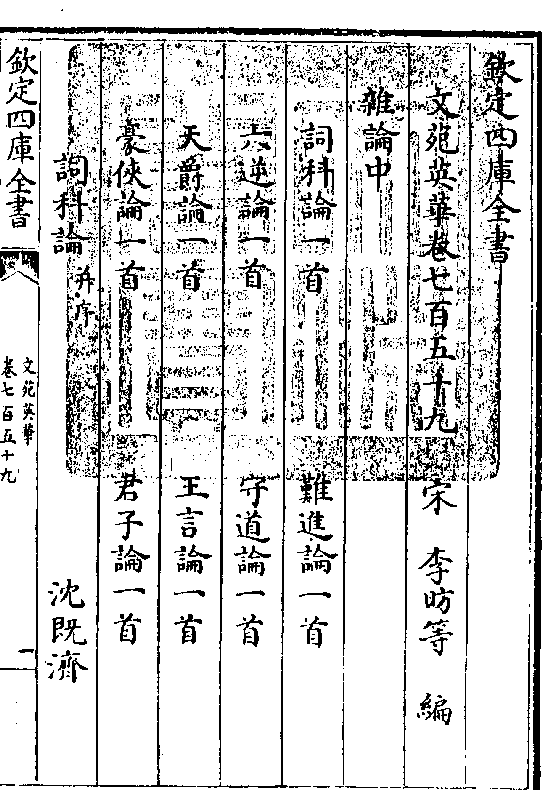 欽定四庫全書
文苑英華卷七百五十九 宋 李昉等 編
雜論中
詞科論一首 難進論一首
六逆論一首 守道論一首
天爵論一首 王言論一首
豪俠論一首 君子論一首
詞科論并序 沈既濟
欽定四庫全書
文苑英華
卷七百五十九
一